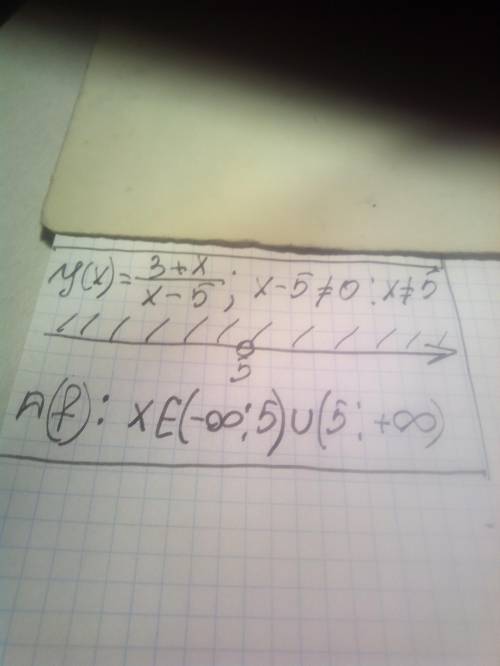 y(x) = \frac{3+x}{x-5}; x-5≠0: x≠5
5
D(f): x∈(-∞; 5)∪(5; +∞)